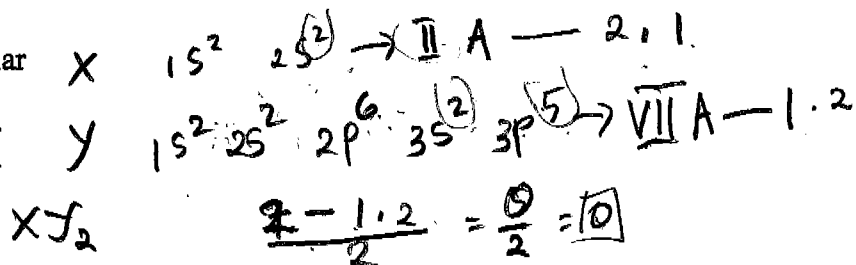 ar X 1s² 2s² → II A — 2.1
Y 1s² 2s² 2p⁶ 3s² 3p⁵ → VII A — 1.2
XY₂ 2 - 1.2 / 2 = 0/2 = 0